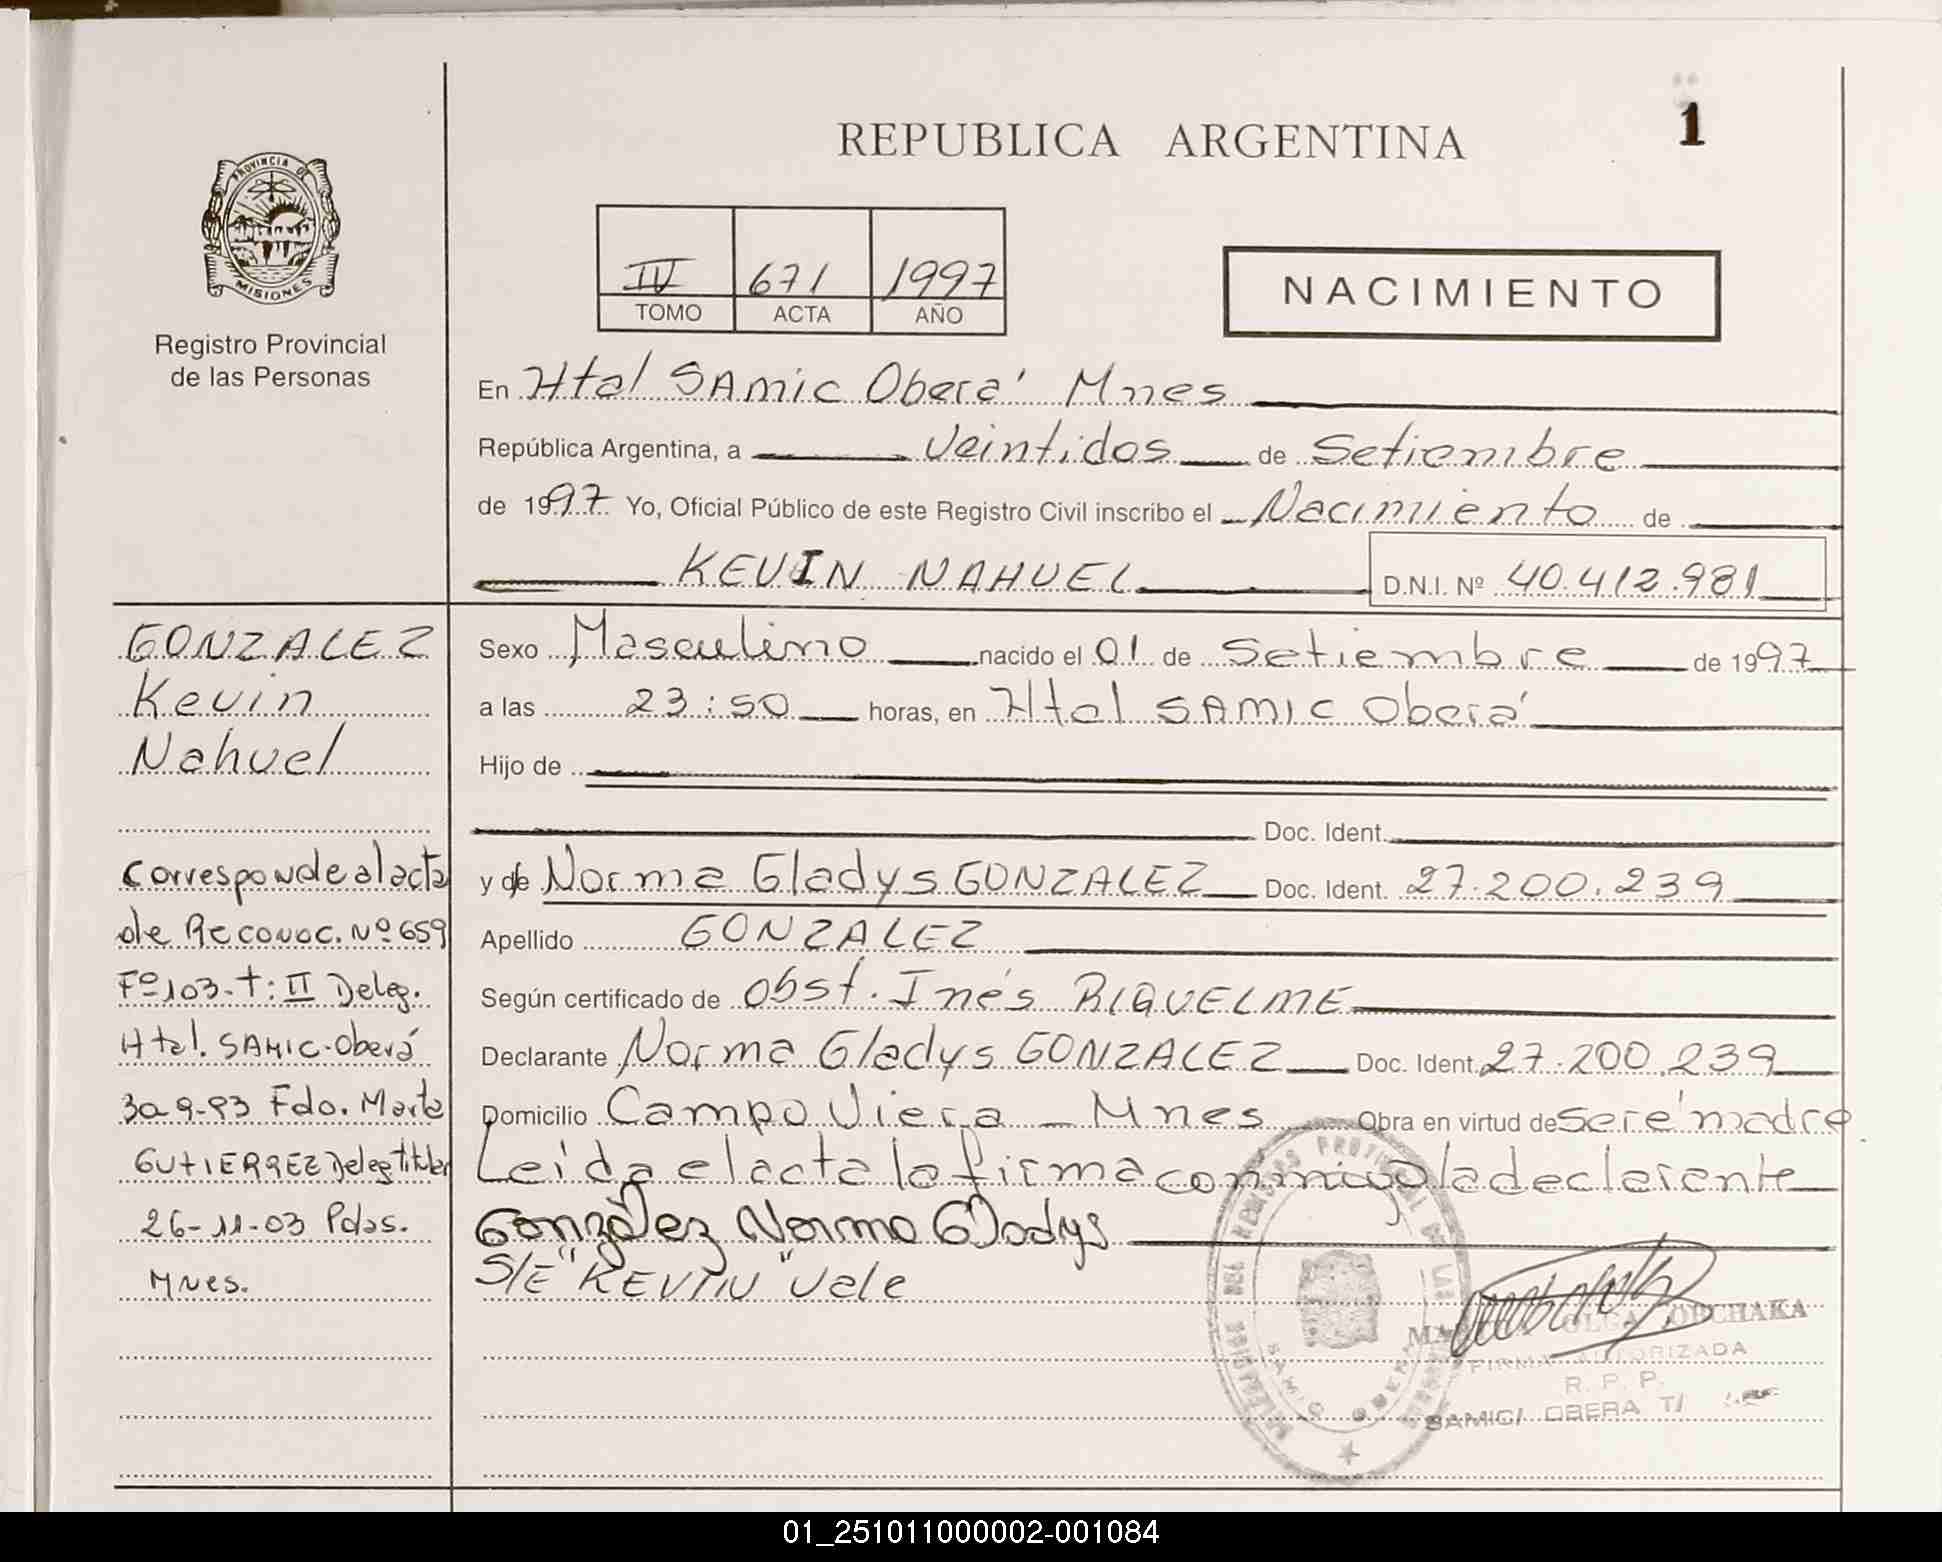 1
REPUBLICA ARGENTINA
PROVINCIA DE
MISIONES
Registro Provincial
de las Personas
IV 671 1997
TOMO ACTA AÑO
NACIMIENTO
En Htal SAMIC Oberá Mnes
República Argentina, a Veintidos de Setiembre
de 1997 Yo, Oficial Público de este Registro Civil inscribo el Nacimiento de
KEVIN NAHUEL D.N.I. Nº 40.412.981
GONZALEZ
Kevin
Nahuel
Sexo Masculino nacido el 01 de Setiembre de 1997
a las 23:50 horas, en Htal SAMIC Oberá
Hijo de
Doc. Ident.
y de Norma Gladys GONZALEZ Doc. Ident. 27.200.239
Apellido GONZALEZ
Según certificado de Obst. Inés RIQUELME
Declarante Norma Gladys GONZALEZ Doc. Ident. 27.200.239
Domicilio Campo Viera - Mnes Obra en virtud de ser e' madre
Leida el acta la firma conmigo la declarante
González Norma Gladys
S/E "KEVIN" Vale
Corresponde al acta
de Reconoc. Nº 659
Fº 103-t: II Deleg.
Htal. SAMIC-Oberá
30-9-93 Fdo. Marta
GUTIERREZ Deleg Titular
26-11-03 Pdas.
Mnes.
OLGA
FIRMA AUTORIZADA
R. P. P.
SAMIC/ OBERA T/
01_251011000002-001084